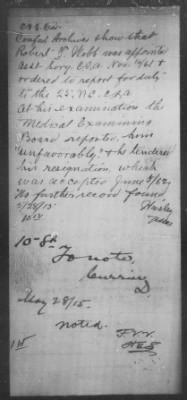 Confed Archives show that
Robert T. Webb was appointed
Asst Surg. C.S.A. Nov 14/61 &
ordered to report for duty
to the 22, N.C. C.S.A
At his examination the
Medical Examining
Board reported him
"unfavorably," & he tendered
his resignation, which
was accepted June 3/62,
No further record found
2/28/15
10-8
To note,
May 28/15.
noted.